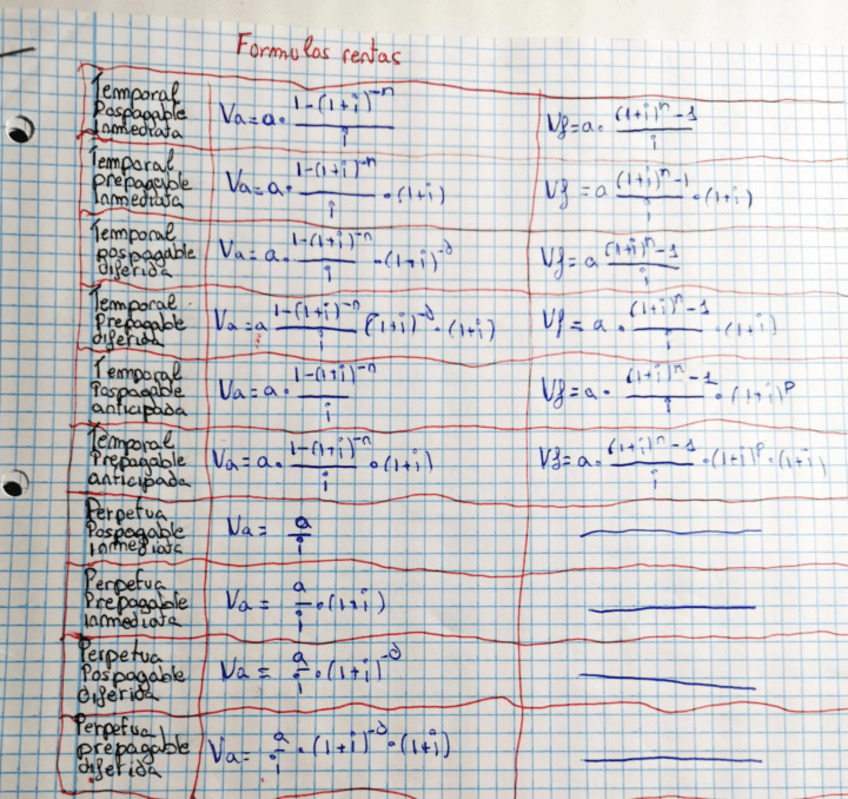 Formulas rentas
Temporal
Pospagable
inmediata
Va = a · (1-(1+i)^-n)/i
Vf = a · ((1+i)^n - 1)/i
Temporal
prepagable
inmediata
Va = a · (1-(1+i)^-n)/i · (1+i)
Vf = a ((1+i)^n - 1)/i · (1+i)
Temporal
pospagable
diferida
Va = a · (1-(1+i)^-n)/i · (1+i)^-d
Vf = a ((1+i)^n - 1)/i
Temporal
Prepagable
diferida
Va = a (1-(1+i)^-n)/i (1+i)^-d · (1+i)
Vf = a · ((1+i)^n - 1)/i · (1+i)
Temporal
Pospagable
anticipada
Va = a · (1-(1+i)^-n)/i
Vf = a · ((1+i)^n - 1)/i · (1+i)^p
Temporal
Prepagable
anticipada
Va = a · (1-(1+i)^-n)/i · (1+i)
Vf = a · ((1+i)^n - 1)/i · (1+i)^p · (1+i)
Perpetua
Pospagable
inmediata
Va = a/i
Perpetua
Prepagable
inmediata
Va = a/i · (1+i)
Perpetua
Pospagable
diferida
Va = a/i · (1+i)^-d
Perpetua
prepagable
diferida
Va = a/i · (1+i)^-d · (1+i)